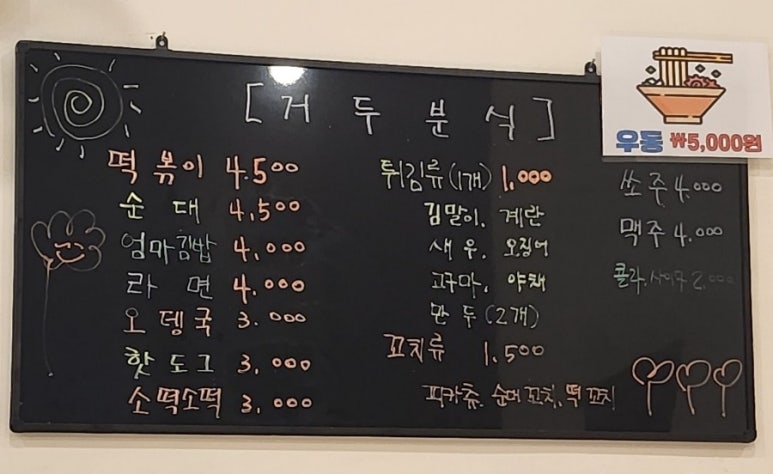 [거두분식]
우동 ₩5,000원
떡볶이 4.500
순대 4,500
엄마김밥 4,000
라면 4.000
오뎅국 3.000
핫도그 3,000
소떡소떡 3,000
튀김류(1개) 1.000
김말이. 계란
새우. 오징어
고구마. 야채
만두(2개)
꼬치류 1.500
피카츄. 순대꼬치. 떡꼬치
쏘주 4.000
맥주 4.000
콜라. 사이다 2,000